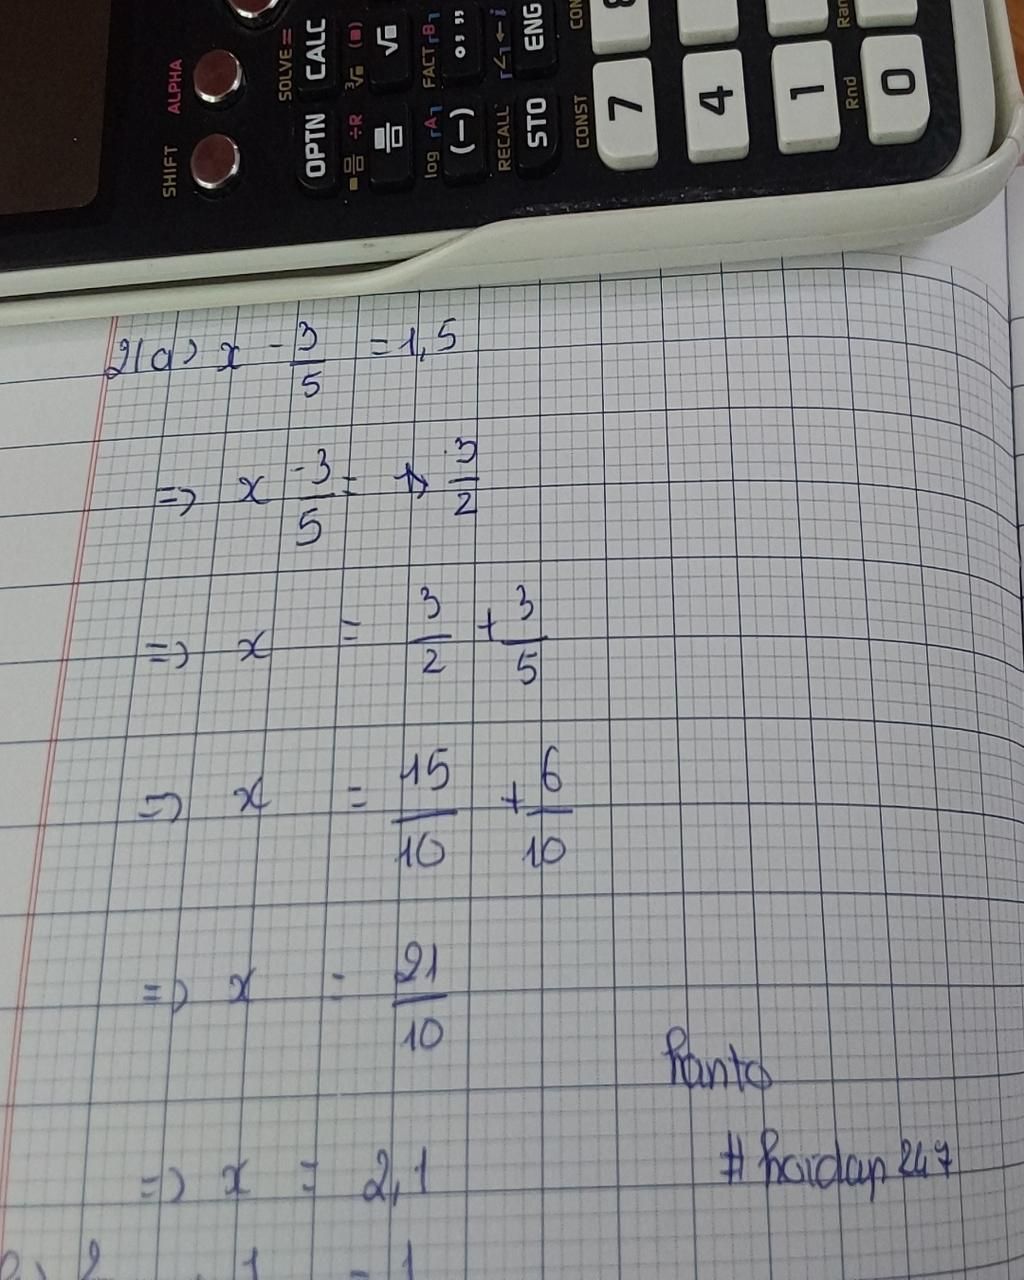 SHIFT ALPHA
OPTN CALC SOLVE =
÷R ³√ (■) √■
log FACT (−) ° ’ ”
RECALL STO ENG
CONST CON
7 8
4
1 Ran
Rnd 0
2(a) x - 3/5 = 1,5
=> x -3/5 = 3/2
=> x = 3/2 + 3/5
=> x = 15/10 + 6/10
=> x = 21/10
=> x = 2,1
hanto
# hoidap 247